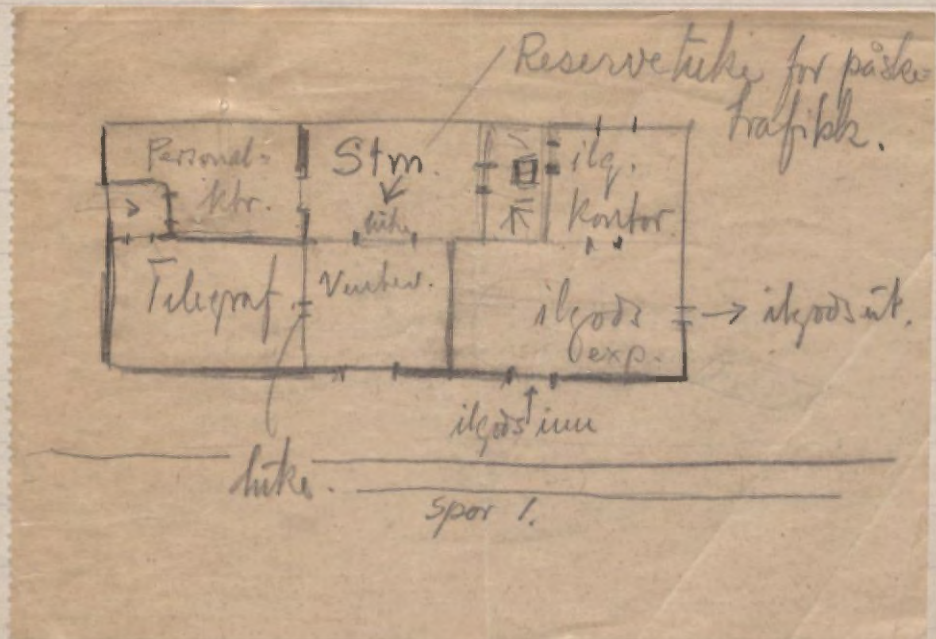 Reserveluke for påske-
trafikk.
Personal-
ktr.
Stm.
luke
ilg.
kontor.
Telegraf
Ventev.
ilgods
exp.
ilgods ut.
ilgods inn
luke.
Spor 1.